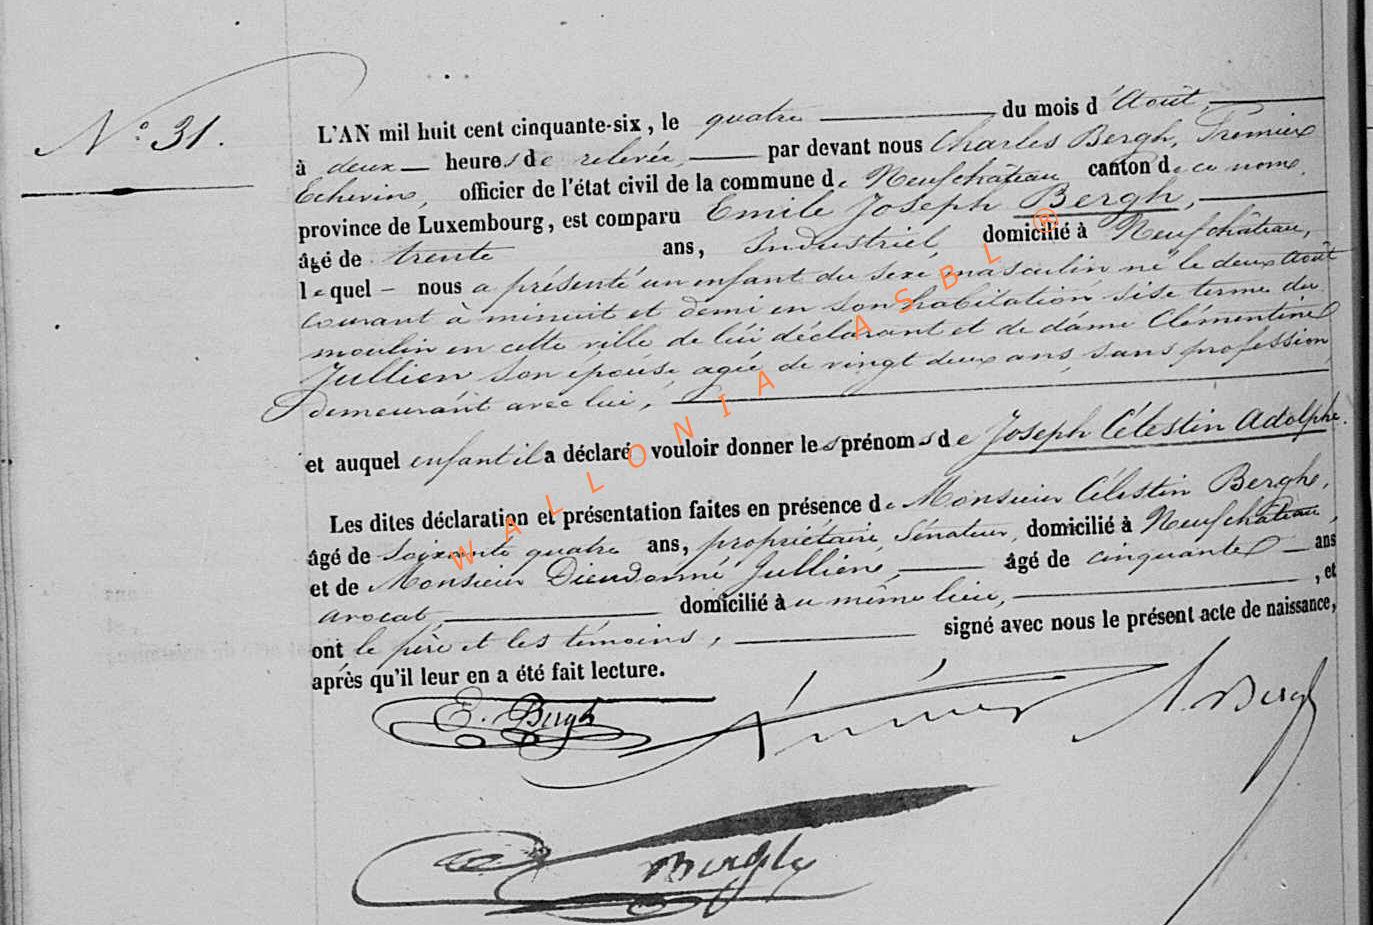 N° 31.
L'AN mil huit cent cinquante-six, le quatre du mois d'Août,
à deux heures de relevée, par devant nous Charles Bergh, Premier
Echevin, officier de l'état civil de la commune de Neufchâteau canton de ce nom,
province de Luxembourg, est comparu Emile Joseph Bergh,
âgé de trente ans, Industriel domicilié à Neufchâteau,
lequel nous a présenté un enfant du sexe masculin né le deux Août
courant à minuit et demi en son habitation sise terme du
moulin en cette ville de lui déclarant et de dame Clémentine
Jullien son épouse, agée de vingt deux ans, sans profession
demeurant avec lui,
et auquel enfant il a déclaré vouloir donner les prénoms de Joseph Célestin Adolphe.
Les dites déclaration et présentation faites en présence de Monsieur Célestin Berghe,
âgé de soixante quatre ans, propriétaire, Sénateur, domicilié à Neufchâteau,
et de Monsieur Dieudonné Jullien, âgé de cinquante ans
avocat, domicilié au même lieu, , et
ont le père et les témoins, signé avec nous le présent acte de naissance,
après qu'il leur en a été fait lecture.
E. Bergh
Bergh
Bergh
WALLONIA ASBL ®